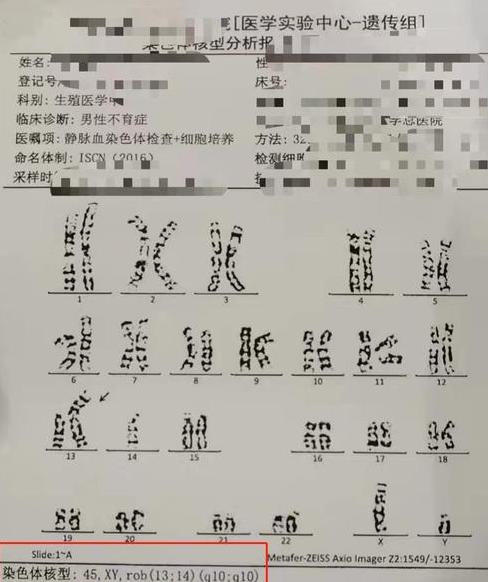 [医学实验中心-遗传组]
染色体核型分析报
姓名:
性
登记号
床号:
科别: 生殖医学中
临床诊断: 男性不育症
医嘱项: 静脉血染色体检查+细胞培养
方法: 32
命名体制: ISCN (2016)
检测细胞
采样时
1 2 3 4 5
6 7 8 9 10 11 12
13 14 15 16 17 18
19 20 21 22 X Y
Slide:1~A
Metafer-ZEISS Axio Imager Z2:1549/-12353
染色体核型: 45,XY,rob(13;14)(q10;q10)